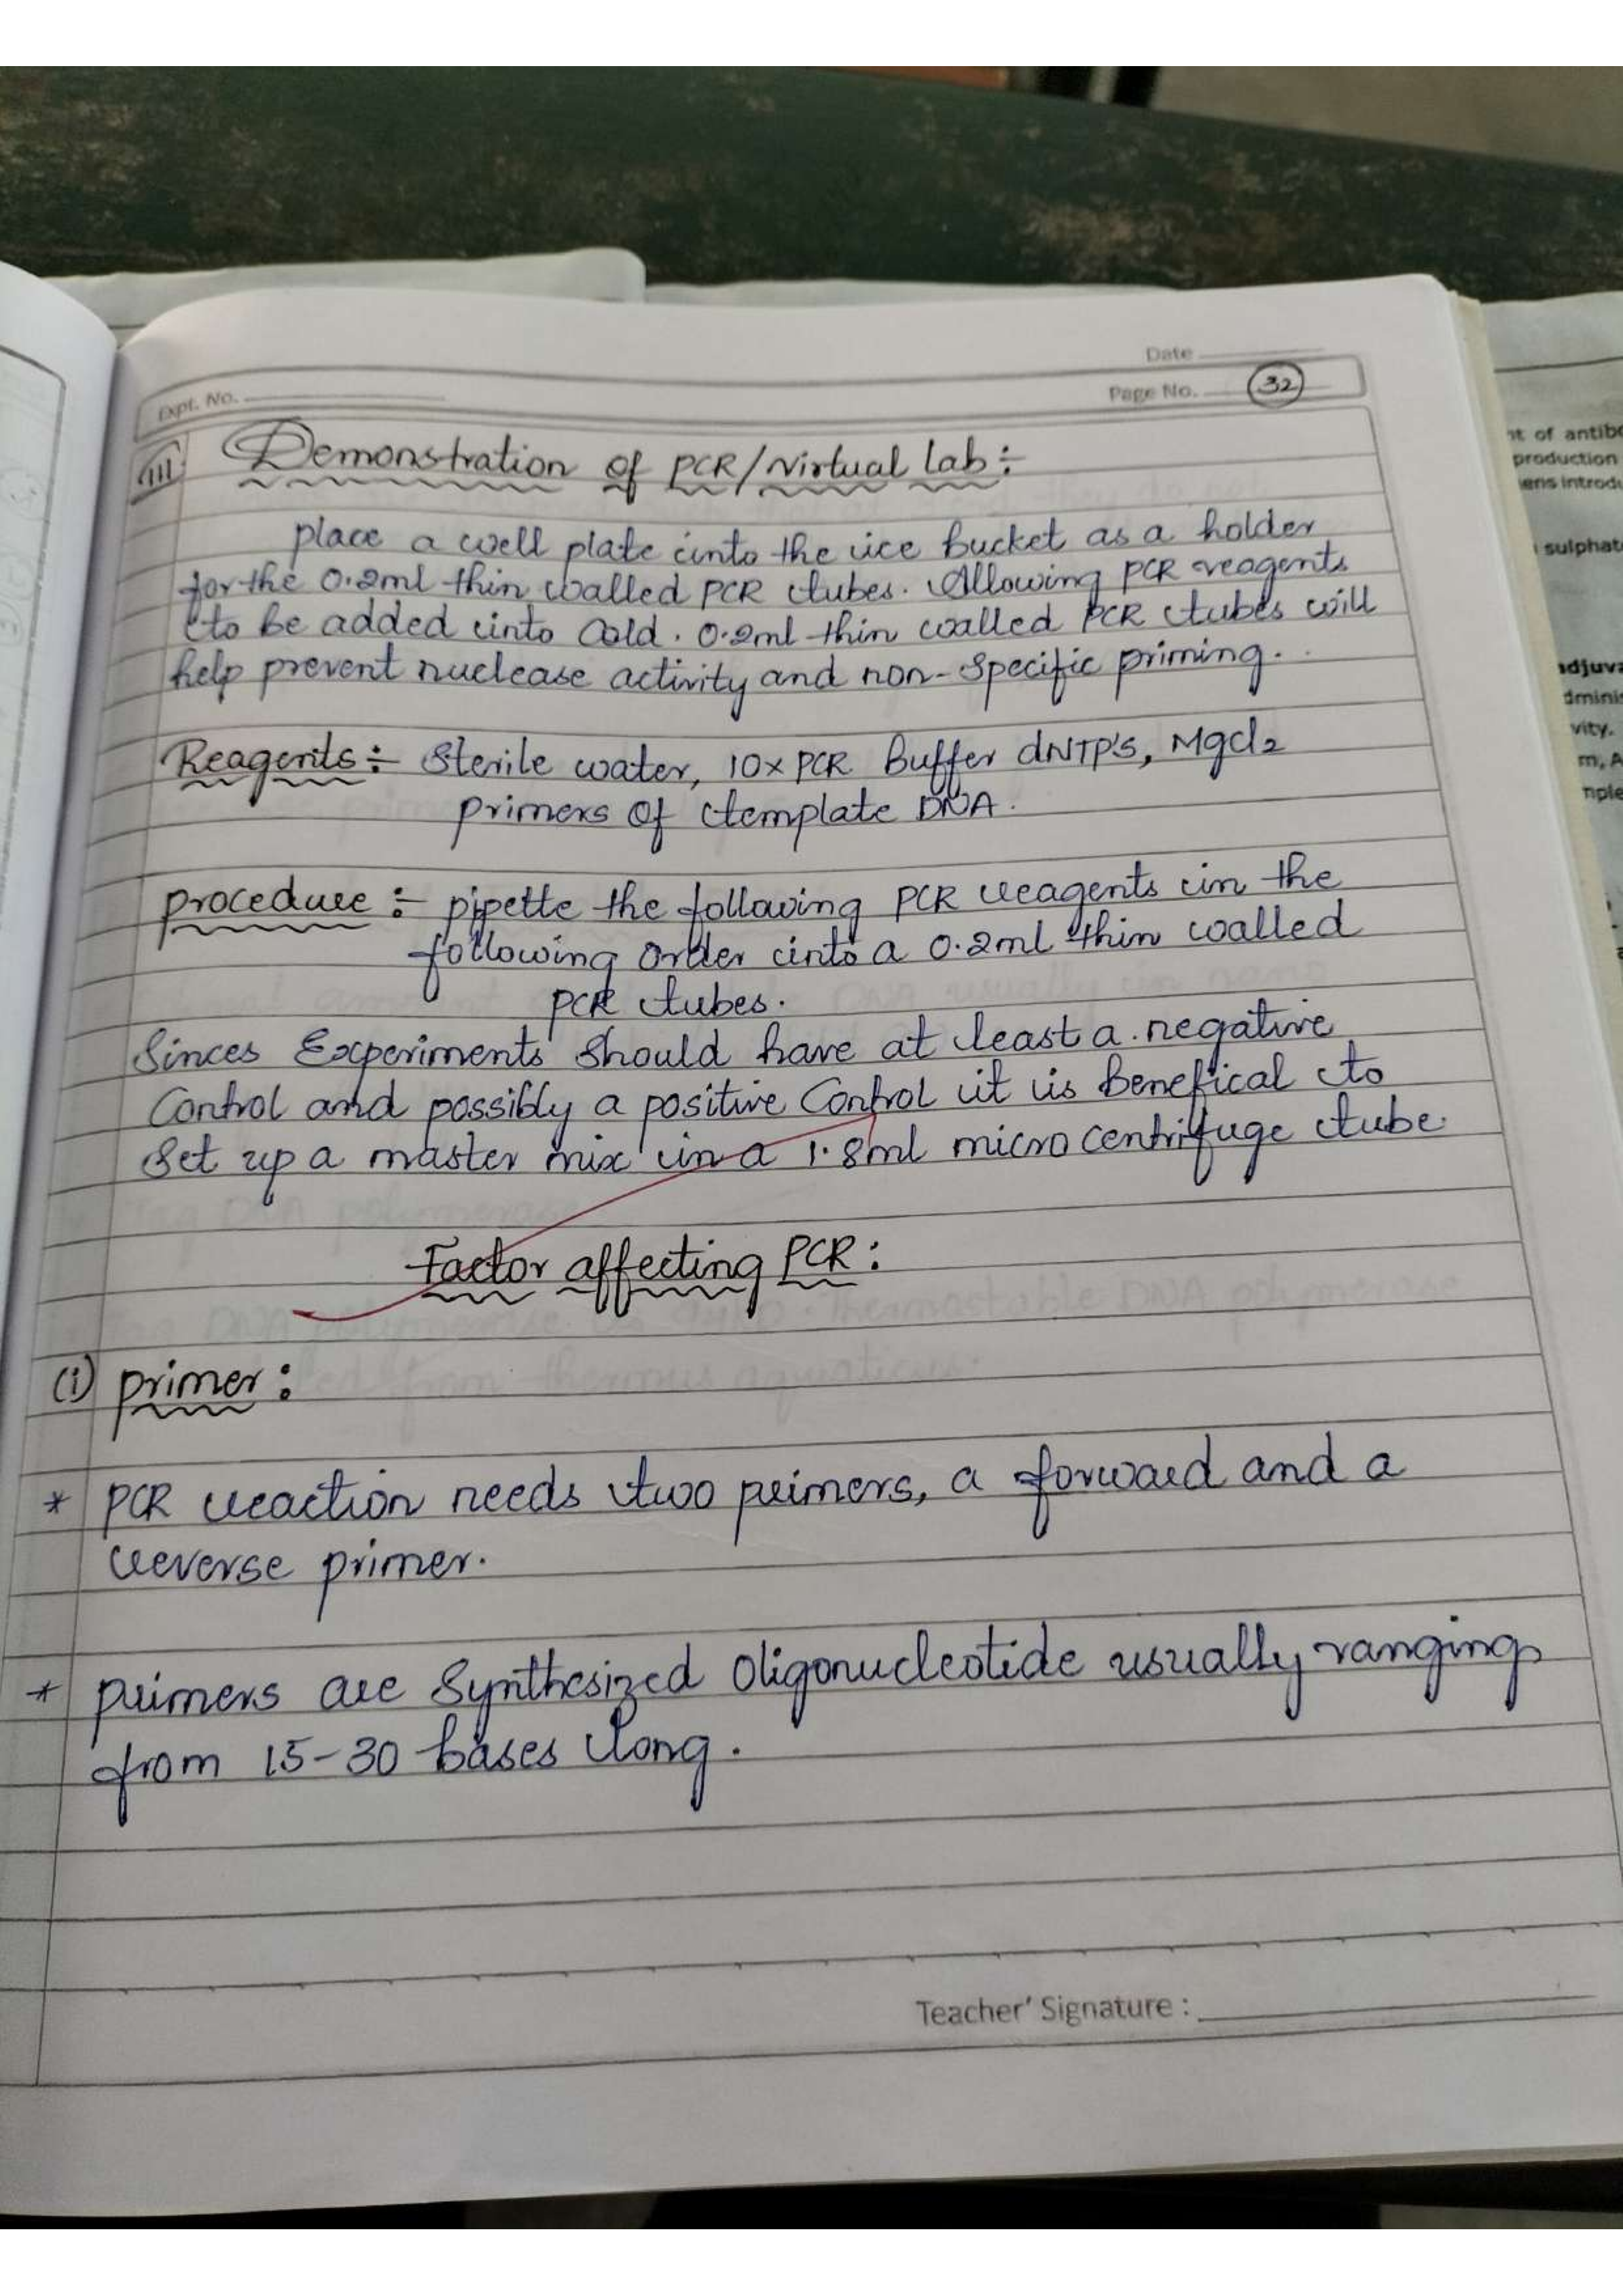 Date
Expt. No.
Page No. 32
III Demonstration of PCR/Virtual lab:-
place a well plate into the ice bucket as a holder
for the 0.2ml thin walled PCR tubes. Allowing PCR reagents
to be added into Cold. 0.2ml thin walled PCR tubes will
help prevent nuclease activity and non-specific priming.
Reagents:- Sterile water, 10x PCR Buffer dNTP's, Mgcl2
primers of template DNA.
procedure:- pipette the following PCR reagents in the
following order into a 0.2ml thin walled
PCR tubes.
Sinces Experiments should have at least a negative
Control and possibly a positive Control it is Benefical to
Set up a master mix in a 1.8ml micro centrifuge tube.
Factor affecting PCR:
(i) primer:
* PCR reaction needs two primers, a forward and a
reverse primer.
* primers are Synthesized Oligonucleotide usually ranging
from 15-30 bases long.
Teacher' Signature :
nt of antib
production
ens introd
sulphat
adjuva
dminis
vity.
m, A
nple